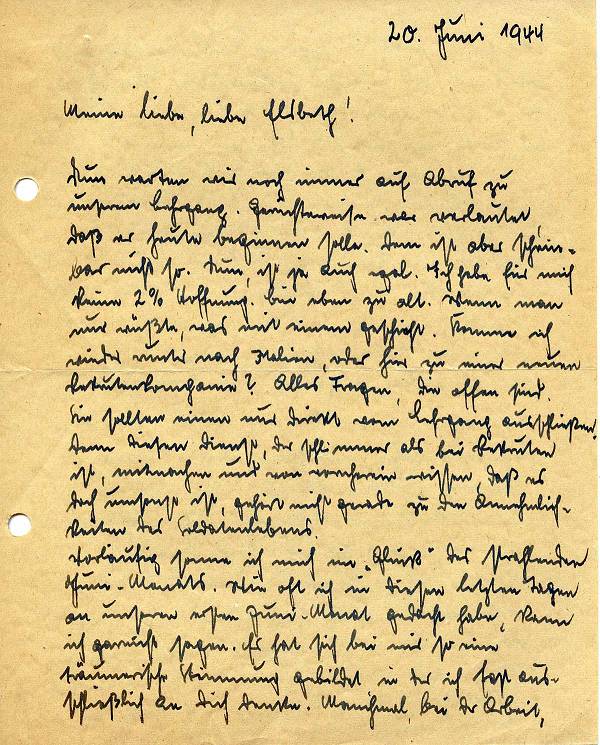 20. Juni 1944
Meine liebe, liebe Elsbeth!
Nun warten wir noch immer auf Abruf zu
unserem Lehrgang. Gerüchteweise war verlautet,
daß er heute beginnen solle. Dem ist aber schein-
bar nicht so. Nun, ist ja auch egal. Ich habe für mich
keine 2% Hoffnung. bin eben zu alt. Wenn man
nur wüßte, was mit einem geschieht. Komme ich
wieder runter nach Italien, oder hier zu einer neuen
Rekrutenkompanie? Alles Fragen, die offen sind.
Sie sollten einen nur direkt vom Lehrgang ausschließen.
Denn diesen Dienst, der schlimmer als bei Rekruten
ist, mitmachen und von vorneherein wissen, daß es
doch umsonst ist, gehört nicht gerade zu den Annehmlich-
keiten des Soldatenlebens.
Vorläufig sonne ich mich im des strahlenden
Juni-Monats. Wie oft ich in diesen letzten Tagen
an unseren ersten Juni-Monat gedacht habe, kann
ich garnicht sagen. Es hat sich bei mir so eine
träumerische Stimmung gebildet in der ich fast aus-
schließlich an Dich denke. Manchmal, bei der Arbeit,